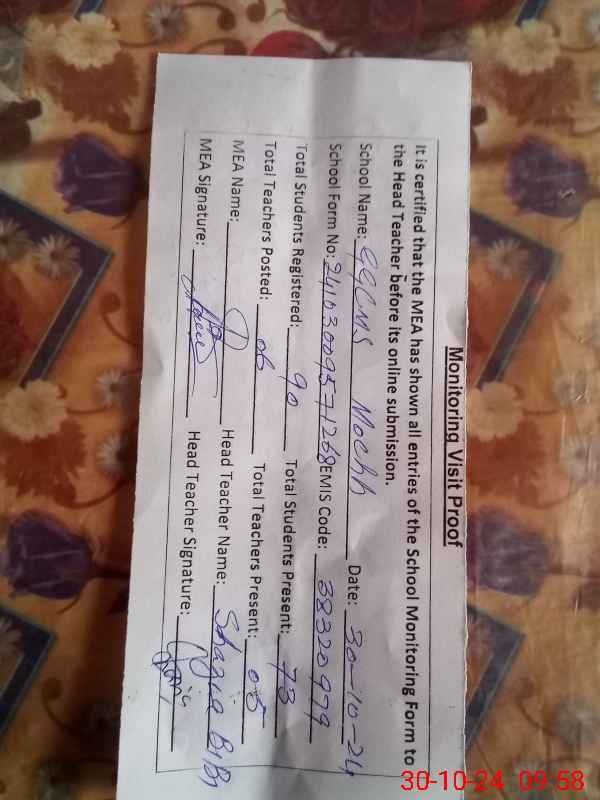 Monitoring Visit Proof
It is certified that the MEA has shown all entries of the School Monitoring Form to
the Head Teacher before its online submission.
School Name: GGCMS Mochh Date: 30-10-24
School Form No: EMIS Code: 38320979
Total Students Registered: 90 Total Students Present: 73
Total Teachers Posted: 06 Total Teachers Present: 05
MEA Name: Head Teacher Name: Shazia BiBi
MEA Signature: Head Teacher Signature:
30-10-24 09:58